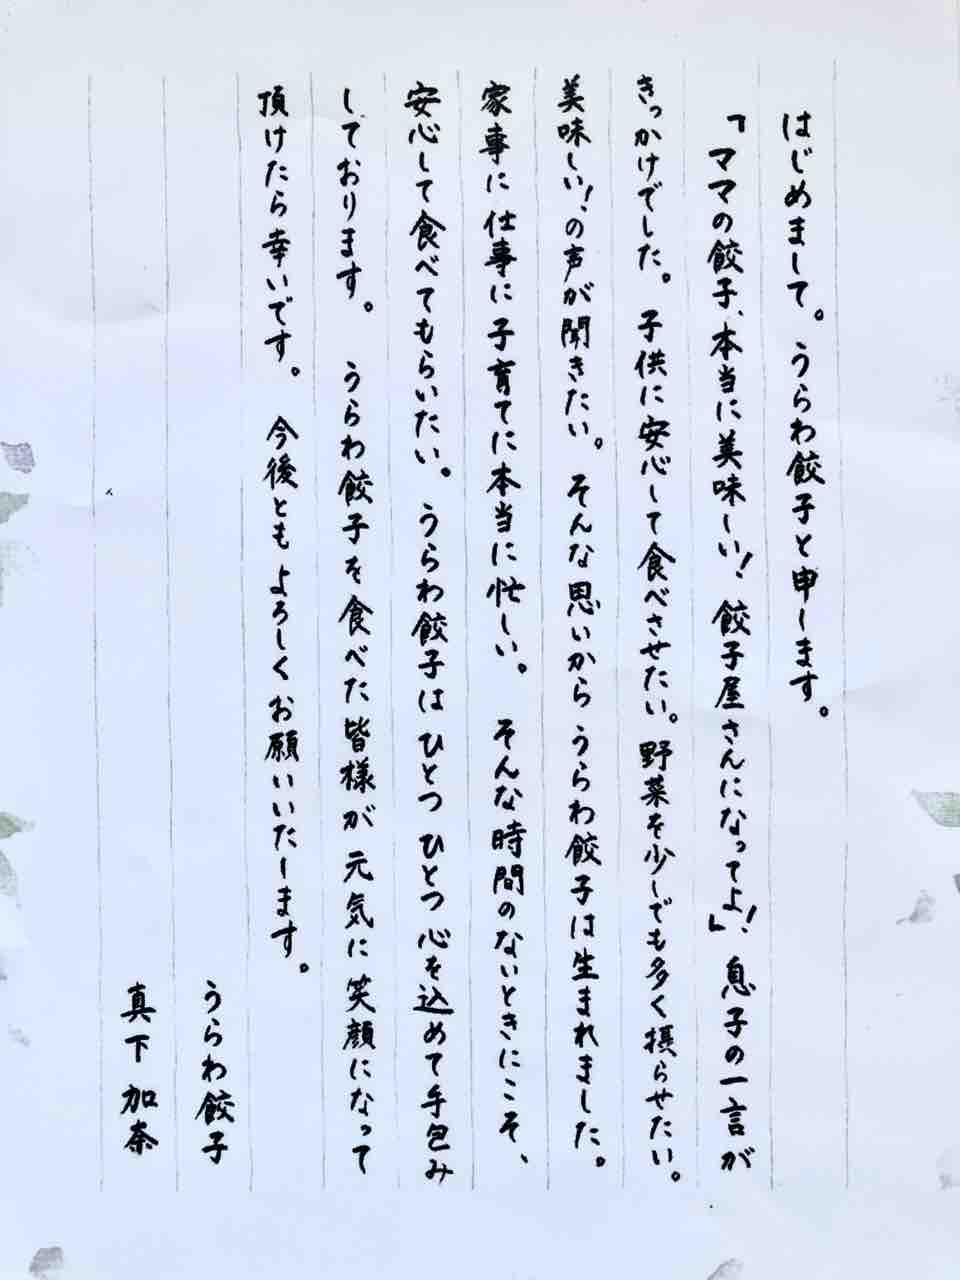 はじめまして。うらわ餃子と申します。
「ママの餃子、本当に美味しい！餃子屋さんになってよ！」息子の一言が
きっかけでした。子供に安心して食べさせたい。野菜を少しでも多く摂らせたい。
美味しい！の声が聞きたい。そんな思いからうらわ餃子は生まれました。
家事に仕事に子育てに本当に忙しい。そんな時間のないときにこそ、
安心して食べてもらいたい。うらわ餃子はひとつひとつ心を込めて手包み
しております。うらわ餃子を食べた皆様が元気に笑顔になって
頂けたら幸いです。今後ともよろしくお願いいたします。
うらわ餃子
真下加奈